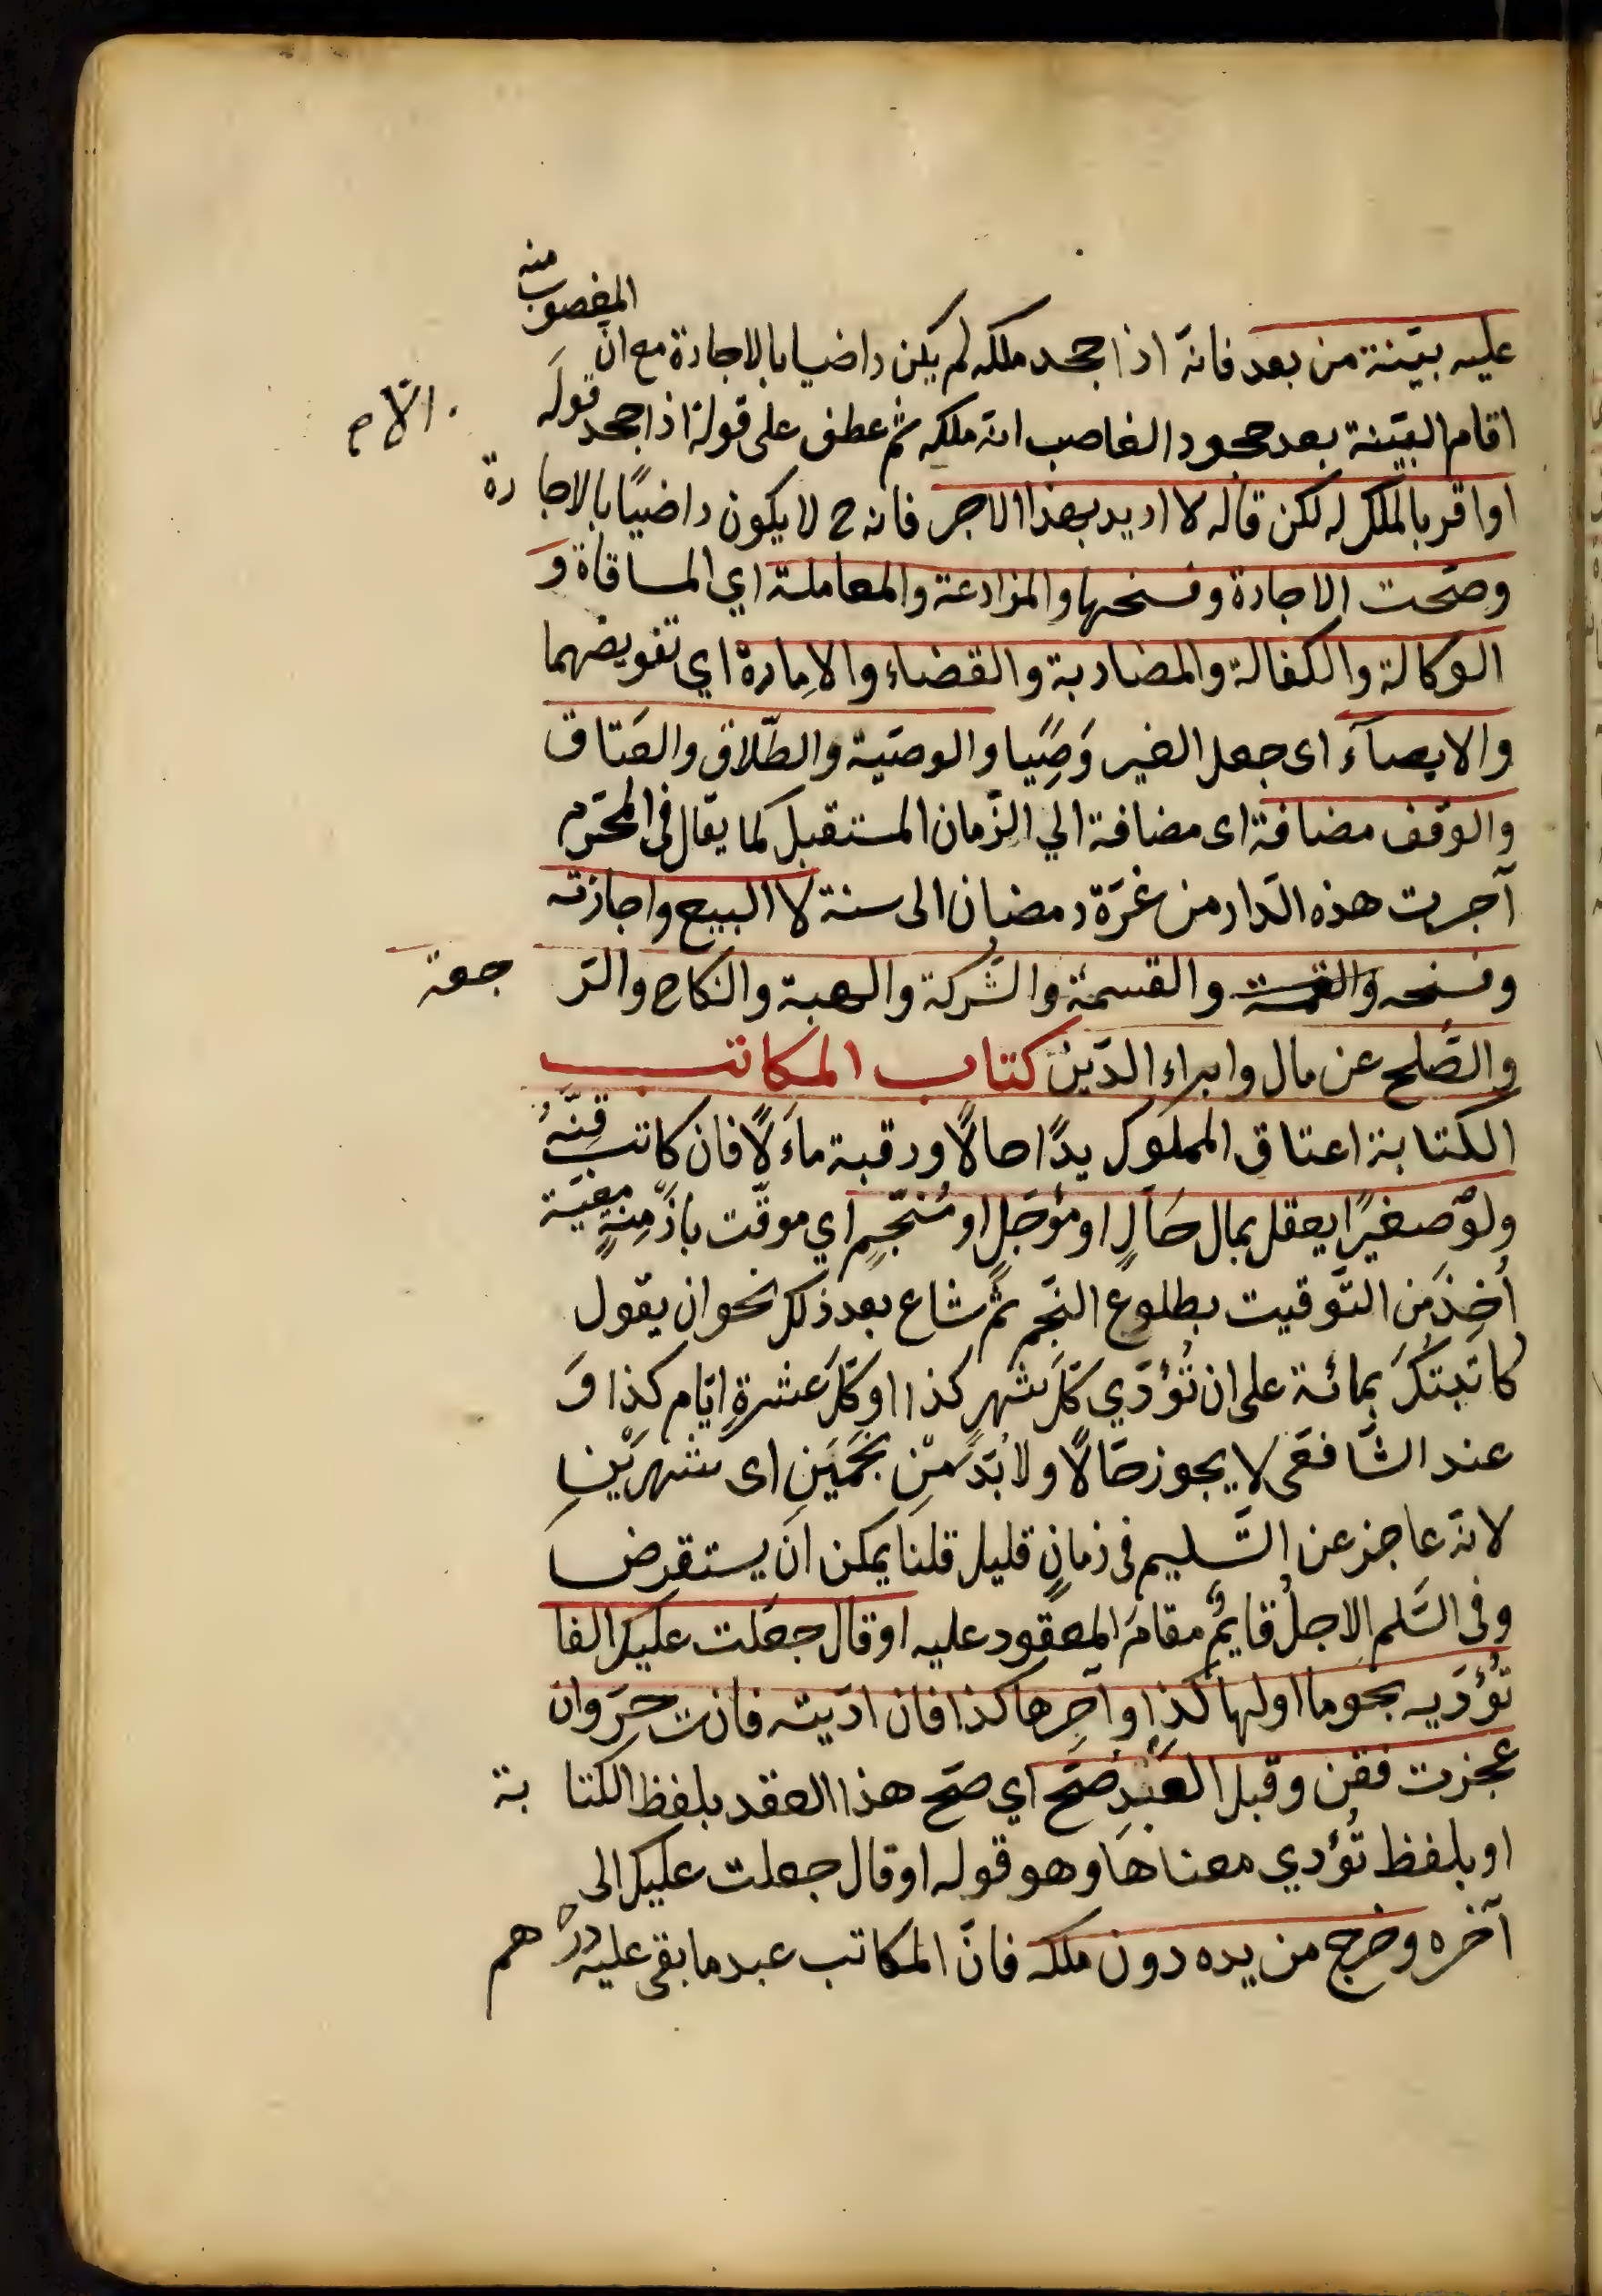 عليه بيّنة من بعد فانّه اذا جحد ملكه لم يكن راضيا بالاجارة مع انّ المغصوب منه
اقام البيّنة بعد جحود الغاصب انّه ملكه ثم عطف على قوله اذا جحد قولَه
او اقر بالملك له لكن قال لا اريد بهذا الاجر فانه ح لا يكون راضيًا بالاجارة
وصحّت الاجارة وفسخها والمزارعة والمعاملة اي المساقاة و
الوكالة والكفالة والمضاربة والقضاء والاِمارة اي تفويضهما
والايصآء اى جعل الغير وَصِيًا والوصيّة والطّلاق والعَتاق
والوقف مضافة اى مضافة الي الزّمان المستقبل كما يقال فى المحرّم
آجرت هذه الدّار من غرّة رمضان الى سنة لا البيع واجازته
وفسخه والقسمة والقسمة والشركة والهبة والنكاح والرّجعة
والصُلح عن مال وابراء الدّين كتاب المكاتب
الكتابة اعتاق المملوك يدًا حالًا ورقبة مآلًا فان كاتب قِنَّهُ
ولو صغيرًا يعقل بمال حَالٍ او مؤجّلٍ او مُنَجّمٍ اي موقّت بازْمِنةٍ معيّنة
أُخِذ من التّوقيت بطلوع النّجم ثم شاع بعد ذلك نحو ان يقول
كاتبتكَ بمائة على ان تُؤدّي كلّ شهر كذا او كلّ عشرةِ ايّام كذا وَ
عند الشّافعى لا يجوز حَالًا ولا بُدّ مِن نجمَين اى شهرَيْنِ
لانّه عاجز عن التّسليم فى زمانٍ قليل قلنا يمكن ان يستقرض
وفى السَلم الاجلُ قايمٌ مقامَ المعقود عليه او قال جعلت عليك الفا
تُؤدّيه نجوما اولها كذا وآخِرها كذا فان ادّيته فانت حرّ وان
عجزت فقن وقبل العَبْدِ صَحّ اي صحّ هذا العقد بلفظ الكتابة
او بلفظ تُؤدي معناها وهو قوله او قال جعلت عليك الى
آخره وخرج من يده دون ملكه فانّ المكاتب عبد ما بقى عليه درهم